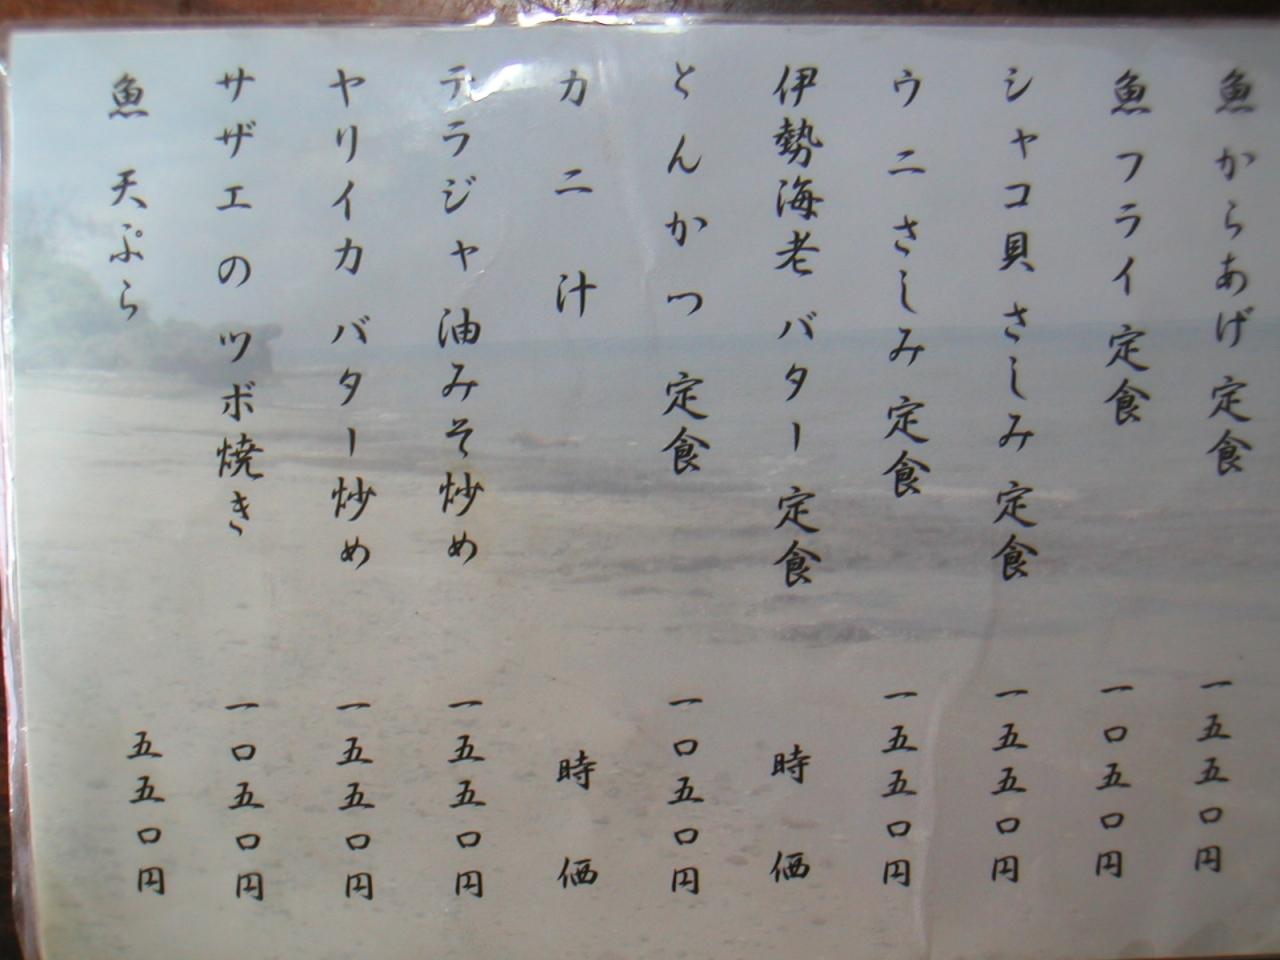 魚からあげ 定食 一五五〇円
魚フライ 定食 一〇五〇円
シャコ貝 さしみ 定食 一五五〇円
ウニ さしみ 定食 一五五〇円
伊勢海老 バター 定食 時価
とんかつ 定食 一〇五〇円
カニ汁 時価
テラジャ 油みそ炒め 一五五〇円
ヤリイカ バター炒め 一五五〇円
サザエのツボ焼き 一〇五〇円
魚 天ぷら 五五〇円